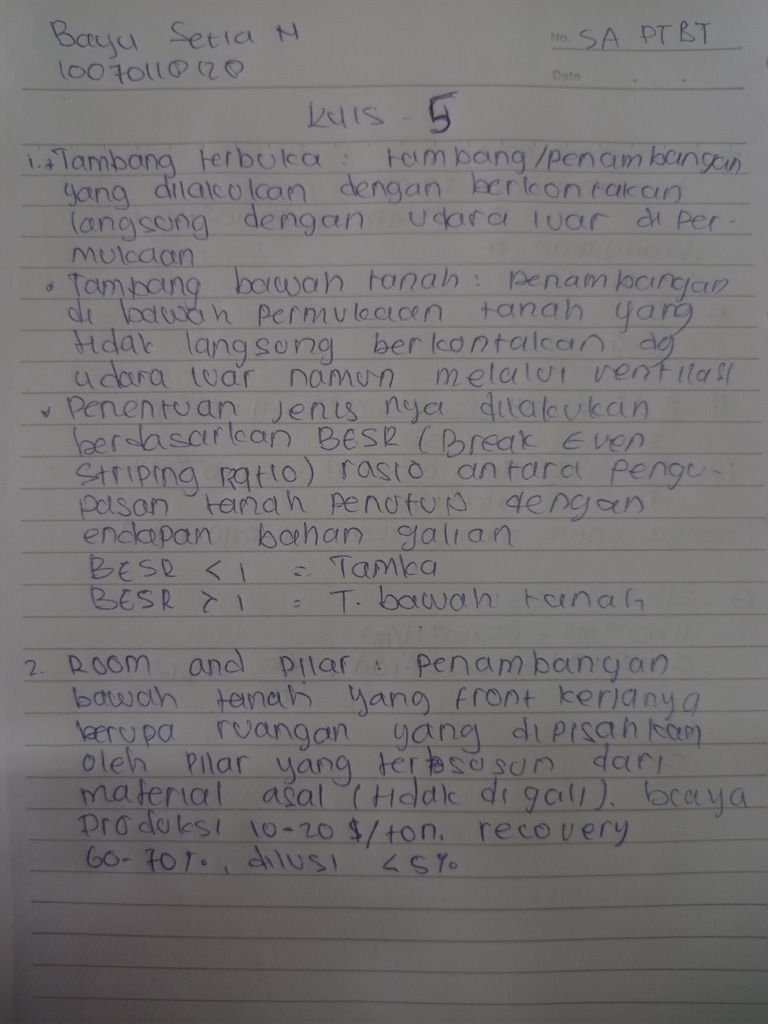 Bayu Setia M
No. SA PTBT
10070110120
Date . .
Kuis - 5
1. Tambang terbuka : tambang/penambangan
yang dilakukan dengan berkontakan
langsong dengan udara luar di per-
mukaan
• Tambang bawah tanah : penambangan
di bawah permukaan tanah yang
tidak langsong berkontakan dg
udara luar namun melalui ventilasi
• Penentuan jenis nya dilakukan
berdasarkan BESR (Break Even
Striping Ratio) rasio antara pengu-
pasan tanah penutup dengan
endapan bahan galian
BESR < 1 = Tamka
BESR > 1 = T. bawah tanah
2. Room and pilar : penambangan
bawah tanah yang front kerjanya
berupa ruangan yang dipisahkan
oleh pilar yang tersosun dari
material asal (tidak di gali). bcaya
produksi 10-20 $/ton. recovery
60-70%. dilusi < 5%